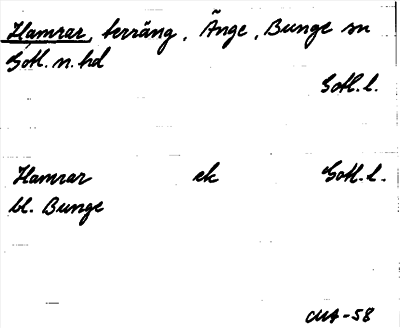 Hamrar, terräng, Änge, Bunge sn
Gotl. n. hd
Gotl. l.
Hamrar ek Gotl. l.
bl. Bunge
CMA-58